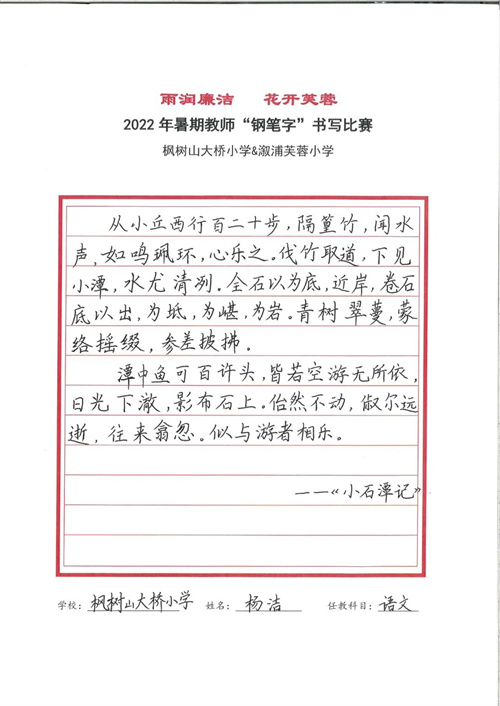 雨润廉洁 花开芙蓉
2022年暑期教师“钢笔字”书写比赛
枫树山大桥小学&溆浦芙蓉小学
从小丘西行百二十步，隔篁竹，闻水
声，如鸣珮环，心乐之。伐竹取道，下见
小潭，水尤清冽。全石以为底，近岸，卷石
底以出，为坻，为嵁，为岩。青树翠蔓，蒙
络摇缀，参差披拂。
潭中鱼可百许头，皆若空游无所依，
日光下澈，影布石上。佁然不动，俶尔远
逝，往来翕忽。似与游者相乐。
——《小石潭记》
学校：枫树山大桥小学 姓名：杨洁 任教科目：语文